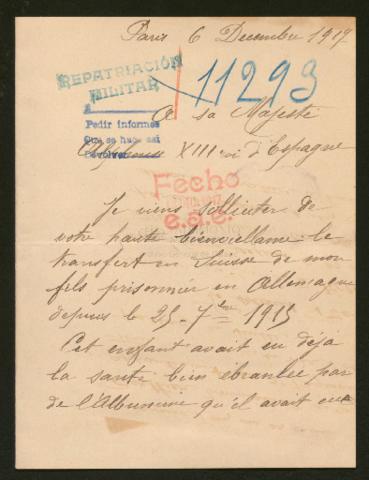 Paris 6 Decembre 1917
REPATRIACIÓN
MILITAR
11293
A sa Majesté
Pedir informes
Que se hace así
Devolver
Alphonse XIII roi d'Espagne
Fecho
e.a.e.
Je viens solliciter de
votre haute bienveillance le
transfert en Suisse de mon
fils prisonnier en Allemagne
depuis le 25-7bre 1915
Cet enfant avait eu déjà
la santé bien ébranlée par
de l'Albumine qu'il avait eue